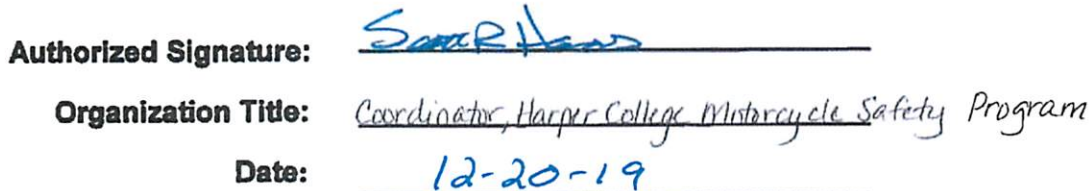 Authorized Signature: Sara R Haas
Organization Title: Coordinator, Harper College Motorcycle Safety Program
Date: 12-20-19